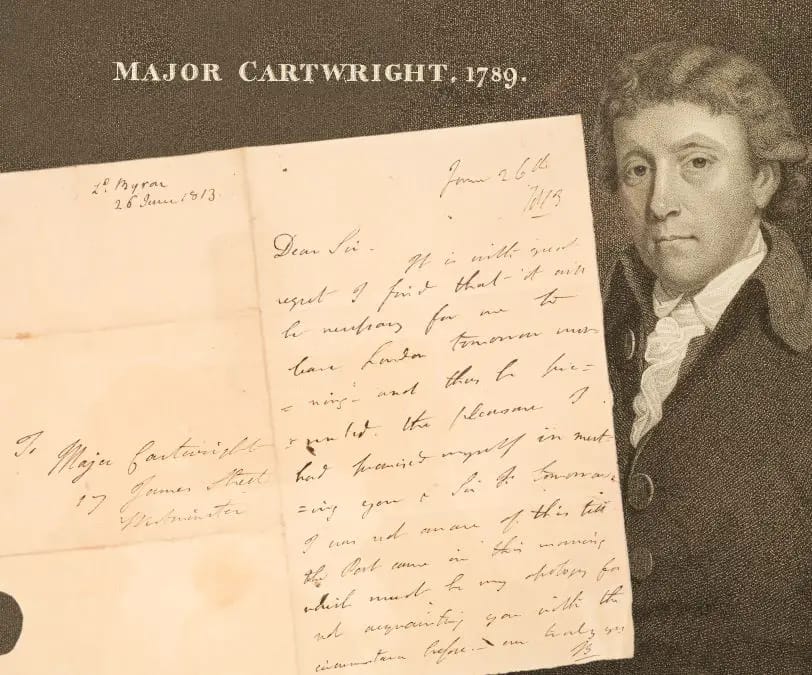 MAJOR CARTWRIGHT. 1789.
Ld. Byron
26 June 1813.
To
Major Cartwright
17 James Street
Westminster
June 26th
1813
Dear Sir - It is with great
regret I find that it will
be necessary for me to
leave London tomorrow mor-
=ning - and thus be pre=
=vented the pleasure I
had promised myself in meet
=ing you & Sir F. tomorrow -
I was not aware of this till
the Post came in this morning
which must be my apology for
not acquainting you with the
circumstance before. -